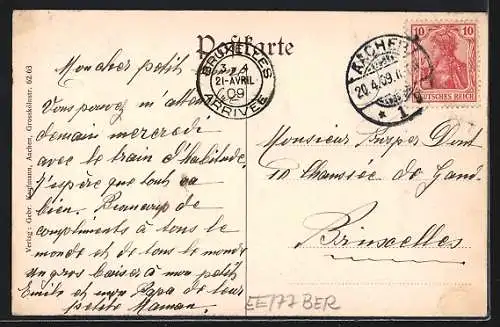 Postkarte
BRUXELLES
3-4
21-AVRIL
09
ARRIVÉE
AACHEN
20.4.09
* 1
10 10
DEUTSCHES REICH
Mon cher petit
Vous pouvez m'attendre
demain mercredi
avec le train d'habitude.
J'espère que tout va
bien. Beaucoup de
compliments à tout le
monde et de tous le monde
un gros baiser à mon petit
Emile et mon Papa de leur
petite Maman.
Monsieur Dumt
10 Chaussée de Gand
Bruxelles
Verlag: Gebr. Kaufmann, Aachen, Grosskölnstr. 62.63
EE777 BER